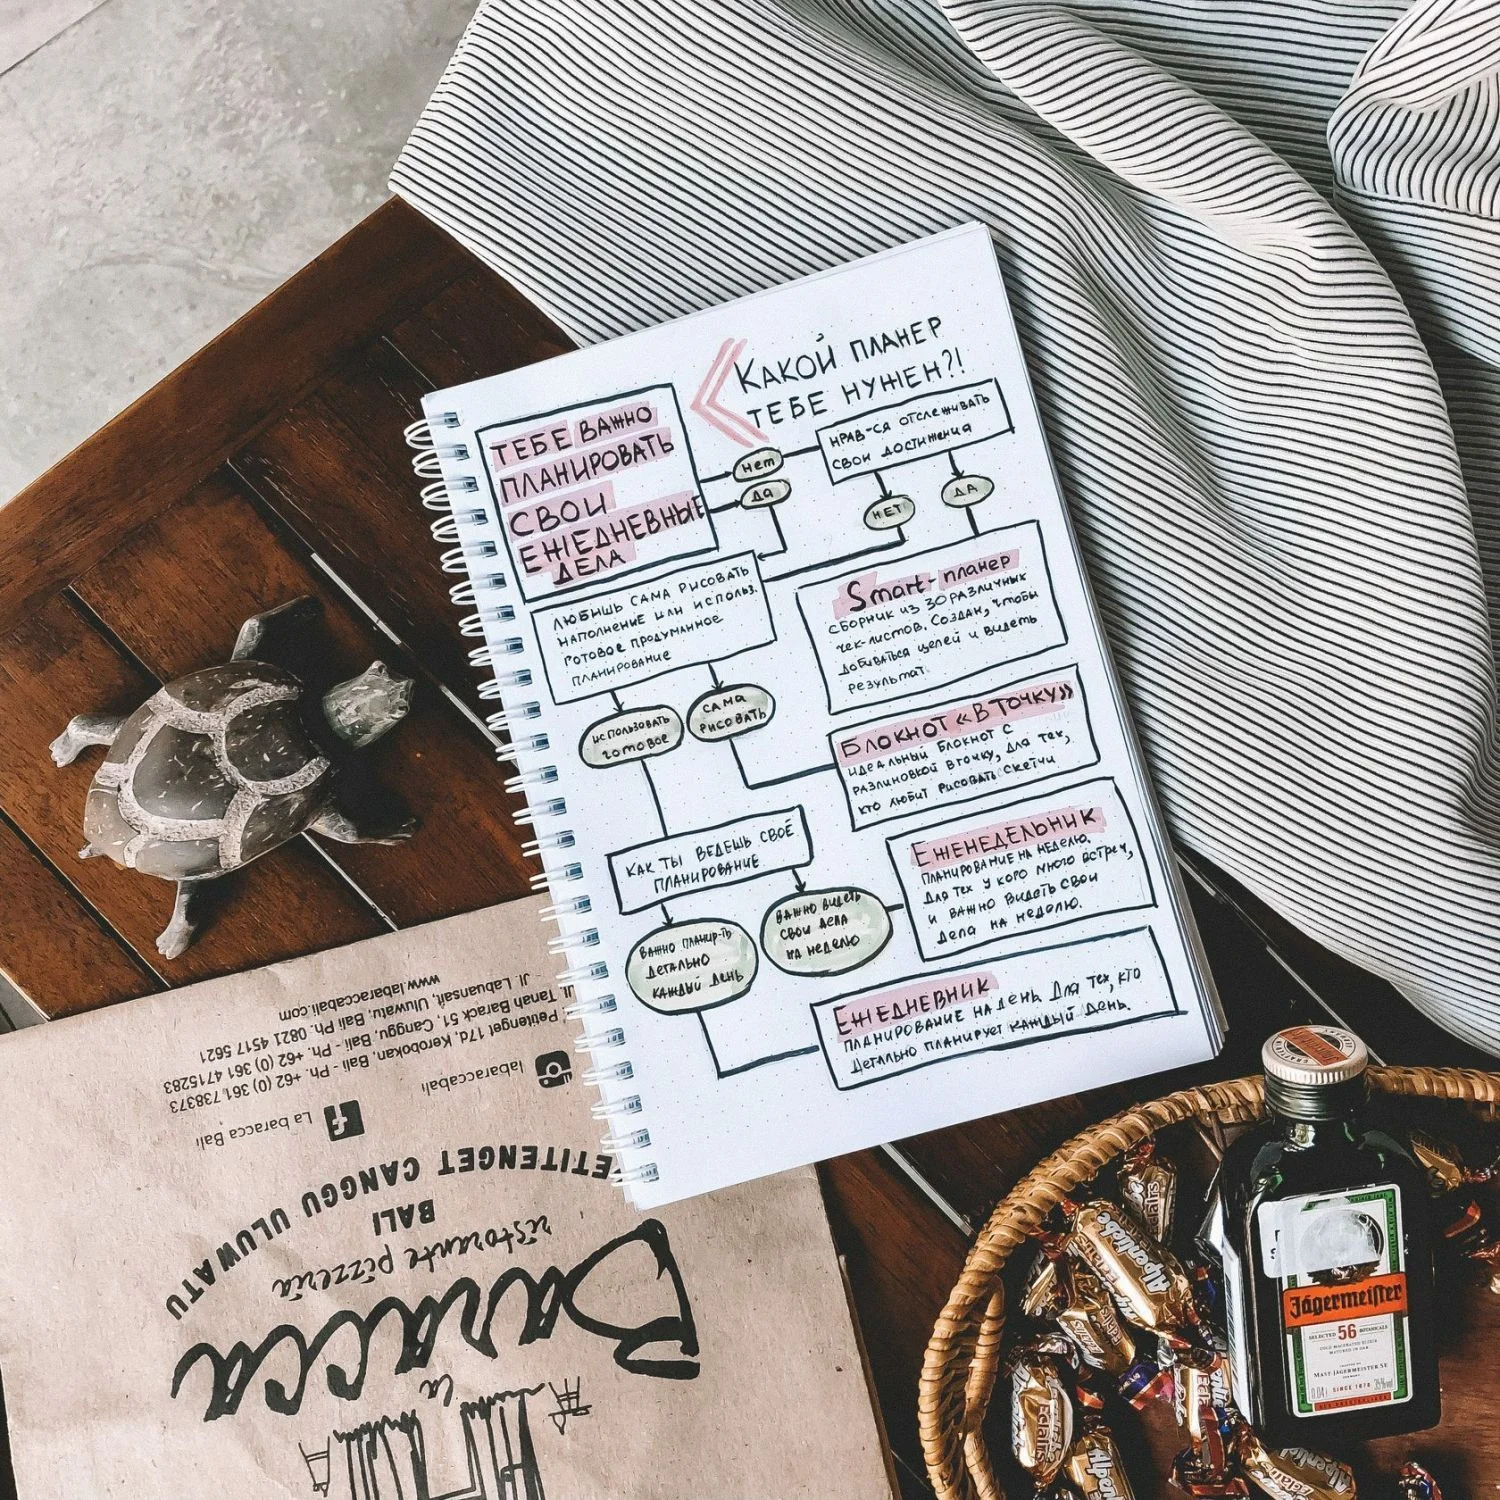 « КАКОЙ ПЛАНЕР
ТЕБЕ НУЖЕН?!
ТЕБЕ ВАЖНО
ПЛАНИРОВАТЬ
СВОИ
ЕЖЕДНЕВНЫЕ
ДЕЛА
нет
ДА
НРАВ-СЯ ОТСЛЕЖИВАТЬ
СВОИ ДОСТИЖЕНИЯ
НЕТ
ДА
ЛЮБИШЬ САМА РИСОВАТЬ
НАПОЛНЕНИЕ ИЛИ ИСПОЛЬЗ.
ГОТОВОЕ ПРОДУМАННОЕ
ПЛАНИРОВАНИЕ
Smart-планер
СБОРНИК ИЗ 30 РАЗЛИЧНЫХ
чек-листов. Создан, чтобы
добиваться целей и видеть
результат.
ИСПОЛЬЗОВАТЬ
ГОТОВОЕ
САМА
РИСОВАТЬ
БЛОКНОТ «В ТОЧКУ»
ИДЕАЛЬНЫЙ БЛОКНОТ С
РАЗЛИНОВКОЙ В ТОЧКУ, ДЛЯ ТЕХ,
КТО ЛЮБИТ РИСОВАТЬ СКЕТЧИ
КАК ТЫ ВЕДЕШЬ СВОЁ
ПЛАНИРОВАНИЕ
ЕЖЕНЕДЕЛЬНИК
ПЛАНИРОВАНИЕ НА НЕДЕЛЮ.
ДЛЯ ТЕХ У КОГО МНОГО ВСТРЕЧ,
И ВАЖНО ВИДЕТЬ СВОИ
ДЕЛА НА НЕДЕЛЮ.
ВАЖНО ПЛАНИР-ТЬ
ДЕТАЛЬНО
КАЖДЫЙ ДЕНЬ
ВАЖНО ВИДЕТЬ
СВОИ ДЕЛА
НА НЕДЕЛЮ
ЕЖЕДНЕВНИК
ПЛАНИРОВАНИЕ НА ДЕНЬ. ДЛЯ ТЕХ, КТО
ДЕТАЛЬНО ПЛАНИРУЕТ КАЖДЫЙ ДЕНЬ.
la
Baracca
ristorante pizzeria
BALI
ETITENGET CANGGU ULUWATU
La baracca Bali
labaraccabali
Petitenget 17d, Kerobokan, Bali - Ph. +62 (0) 361 738373
Jl. Tanah Barack 51, Canggu, Bali - Ph. +62 (0) 361 4715283
Jl. Labuansait, Uluwatu, Bali Ph. 0821 4517 5621
www.labaraccabali.com
Jägermeister
SELECTED 56 BOTANICALS
COLD MACERATED ELIXIR
MATURED IN OAK
MAST-JÄGERMEISTER SE
SINCE 1878
0,04 l
35%vol
Alpenliebe
Eclairs
Alpenliebe
Eclairs
Eclairs
Eclairs
Alpenliebe
Eclairs